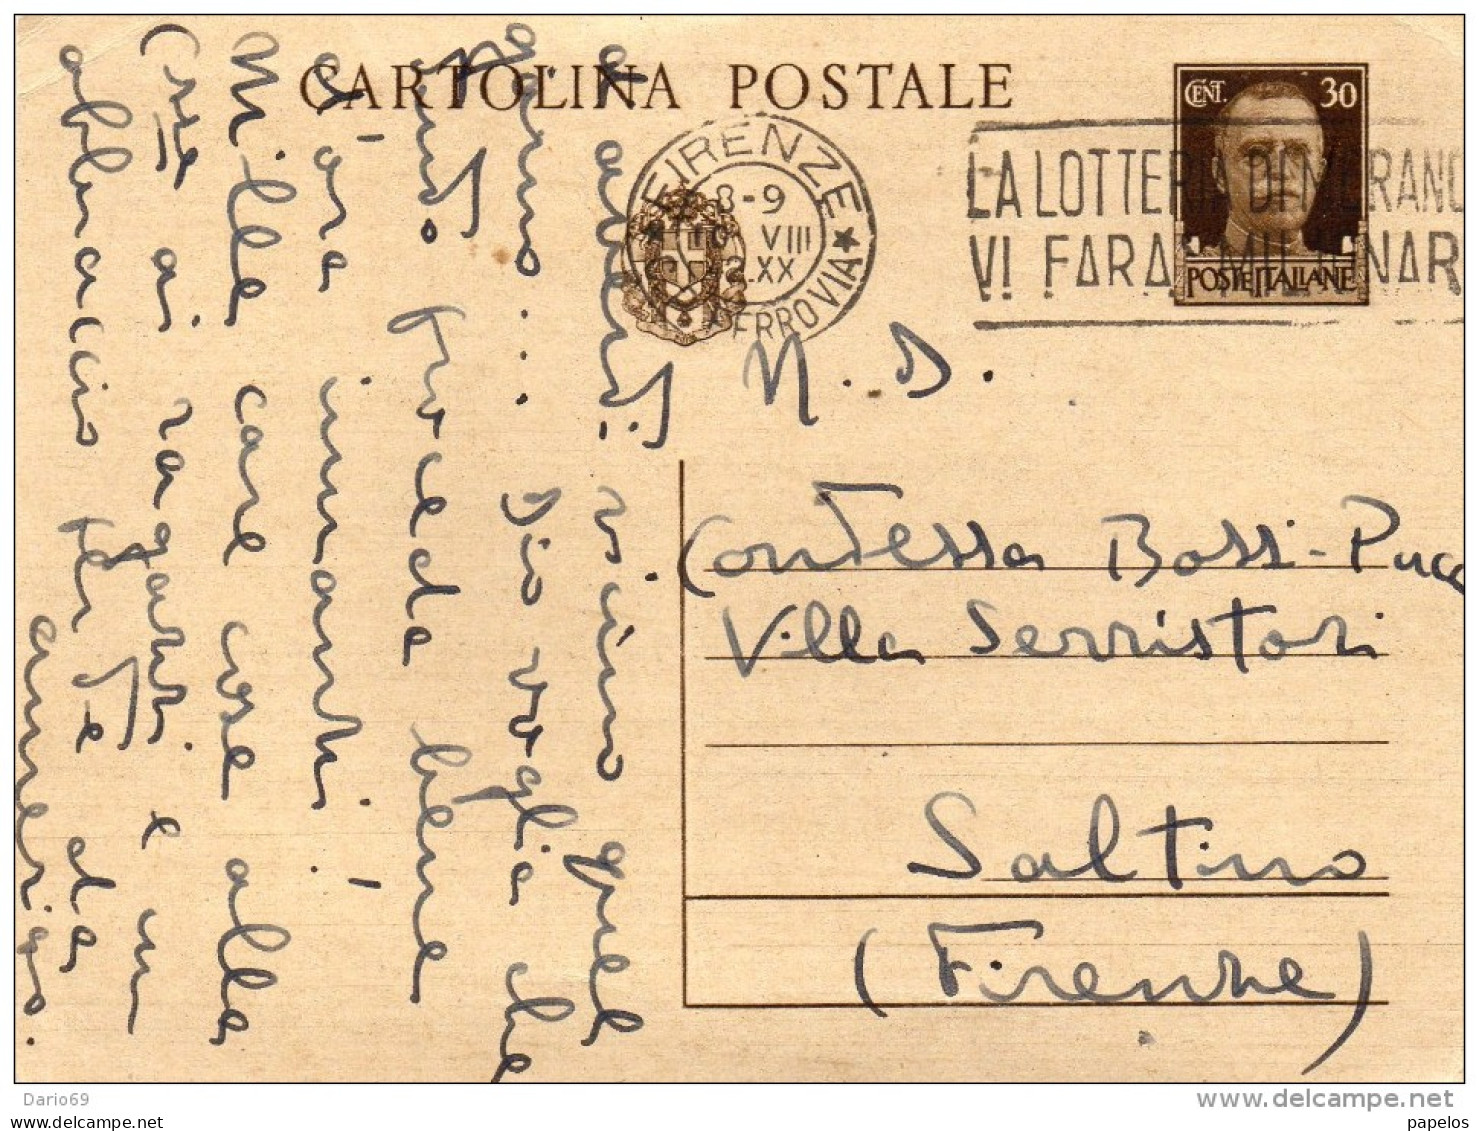 CARTOLINA POSTALE
CENT. 30
POSTE ITALIANE
FIRENZE
8-9
10 VIII
42.XX
FERROVIA
LA LOTTERIA DI MERANO
VI FARA' MILIONARI
N. D.
Contessa Bossi-Pucci
Villa Serristori
Saltino
(Firenze)
vicino quel
giorno... Dio voglia che
tutto proceda bene
d'ora innanti!
Mille care cose alle
ai ragazzi. e un
abbraccio per te da
Amerigo.
Dario69
www.delcampe.net
papelos